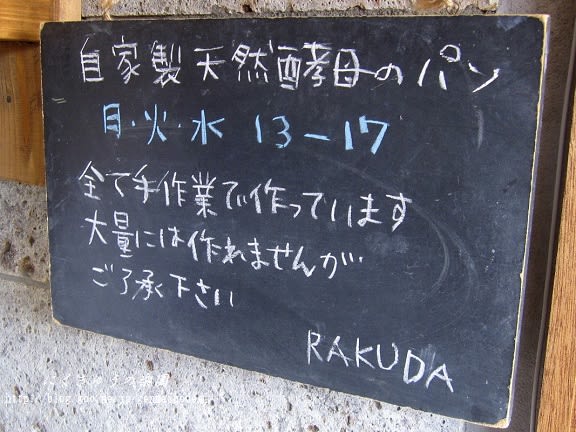 自家製天然酵母のパン
月・火・水 13-17
全て手作業で作っています
大量には作れませんが
ご了承下さい
RAKUDA